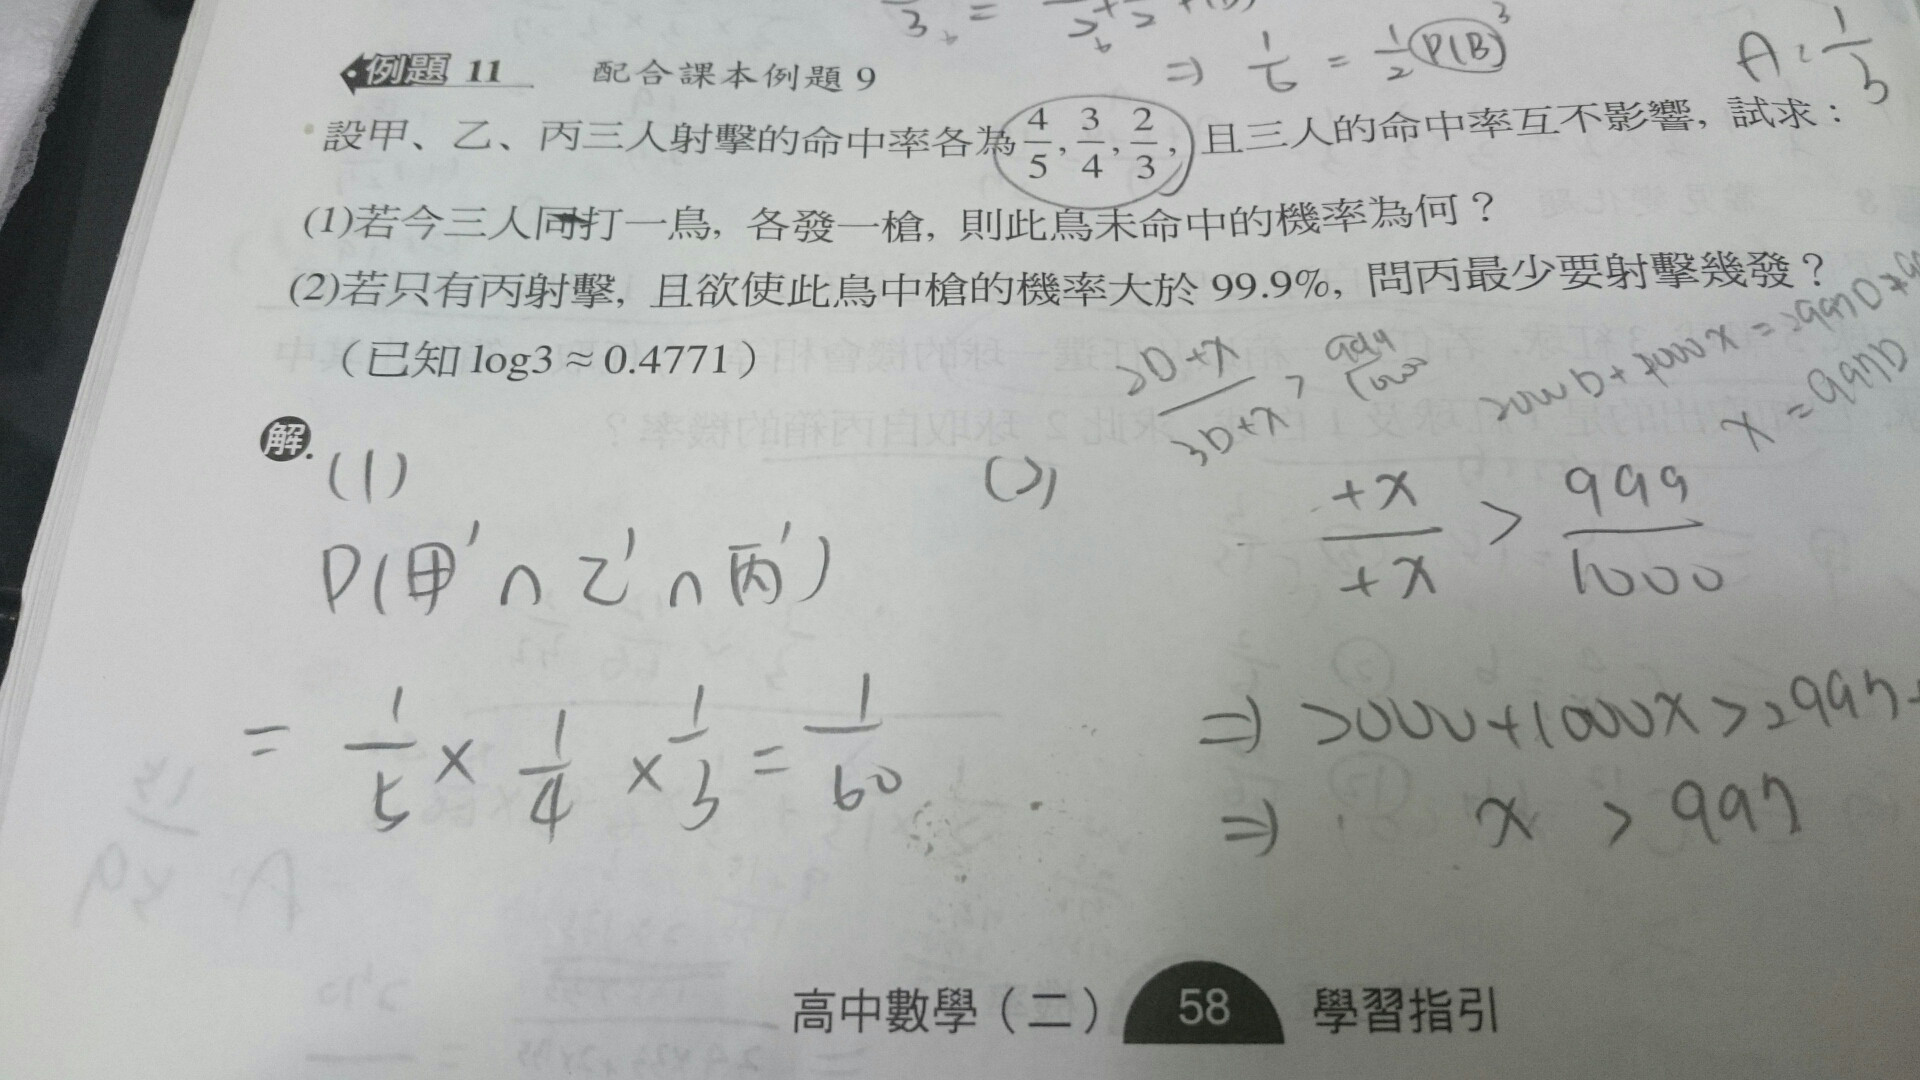 ⇒ 1/6 = 1/2 P(B)
A: 1/3
例題 11 配合課本例題 9
設甲、乙、丙三人射擊的命中率各為 4/5, 3/4, 2/3, 且三人的命中率互不影響, 試求：
(1)若今三人同打一鳥, 各發一槍, 則此鳥未命中的機率為何？
(2)若只有丙射擊, 且欲使此鳥中槍的機率大於 99.9%, 問丙最少要射擊幾發？
（已知 log3 ≈ 0.4771）
解.
(1)
P(甲' ∩ 乙' ∩ 丙')
= 1/5 × 1/4 × 1/3 = 1/60
(2)
+x/+x > 999/1000
⇒ 2000+1000x > 2997+
⇒ x > 997
高中數學（二） 58 學習指引